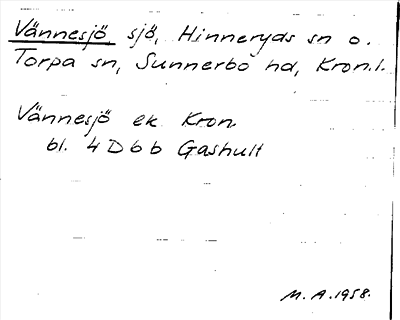 Vännesjö sjö, Hinneryds sn o.
Torpa sn, Sunnerbo hd, Kron.l.
Vännesjö ek Kron.
bl. 4 D b b Gashult
M.A. 1958.